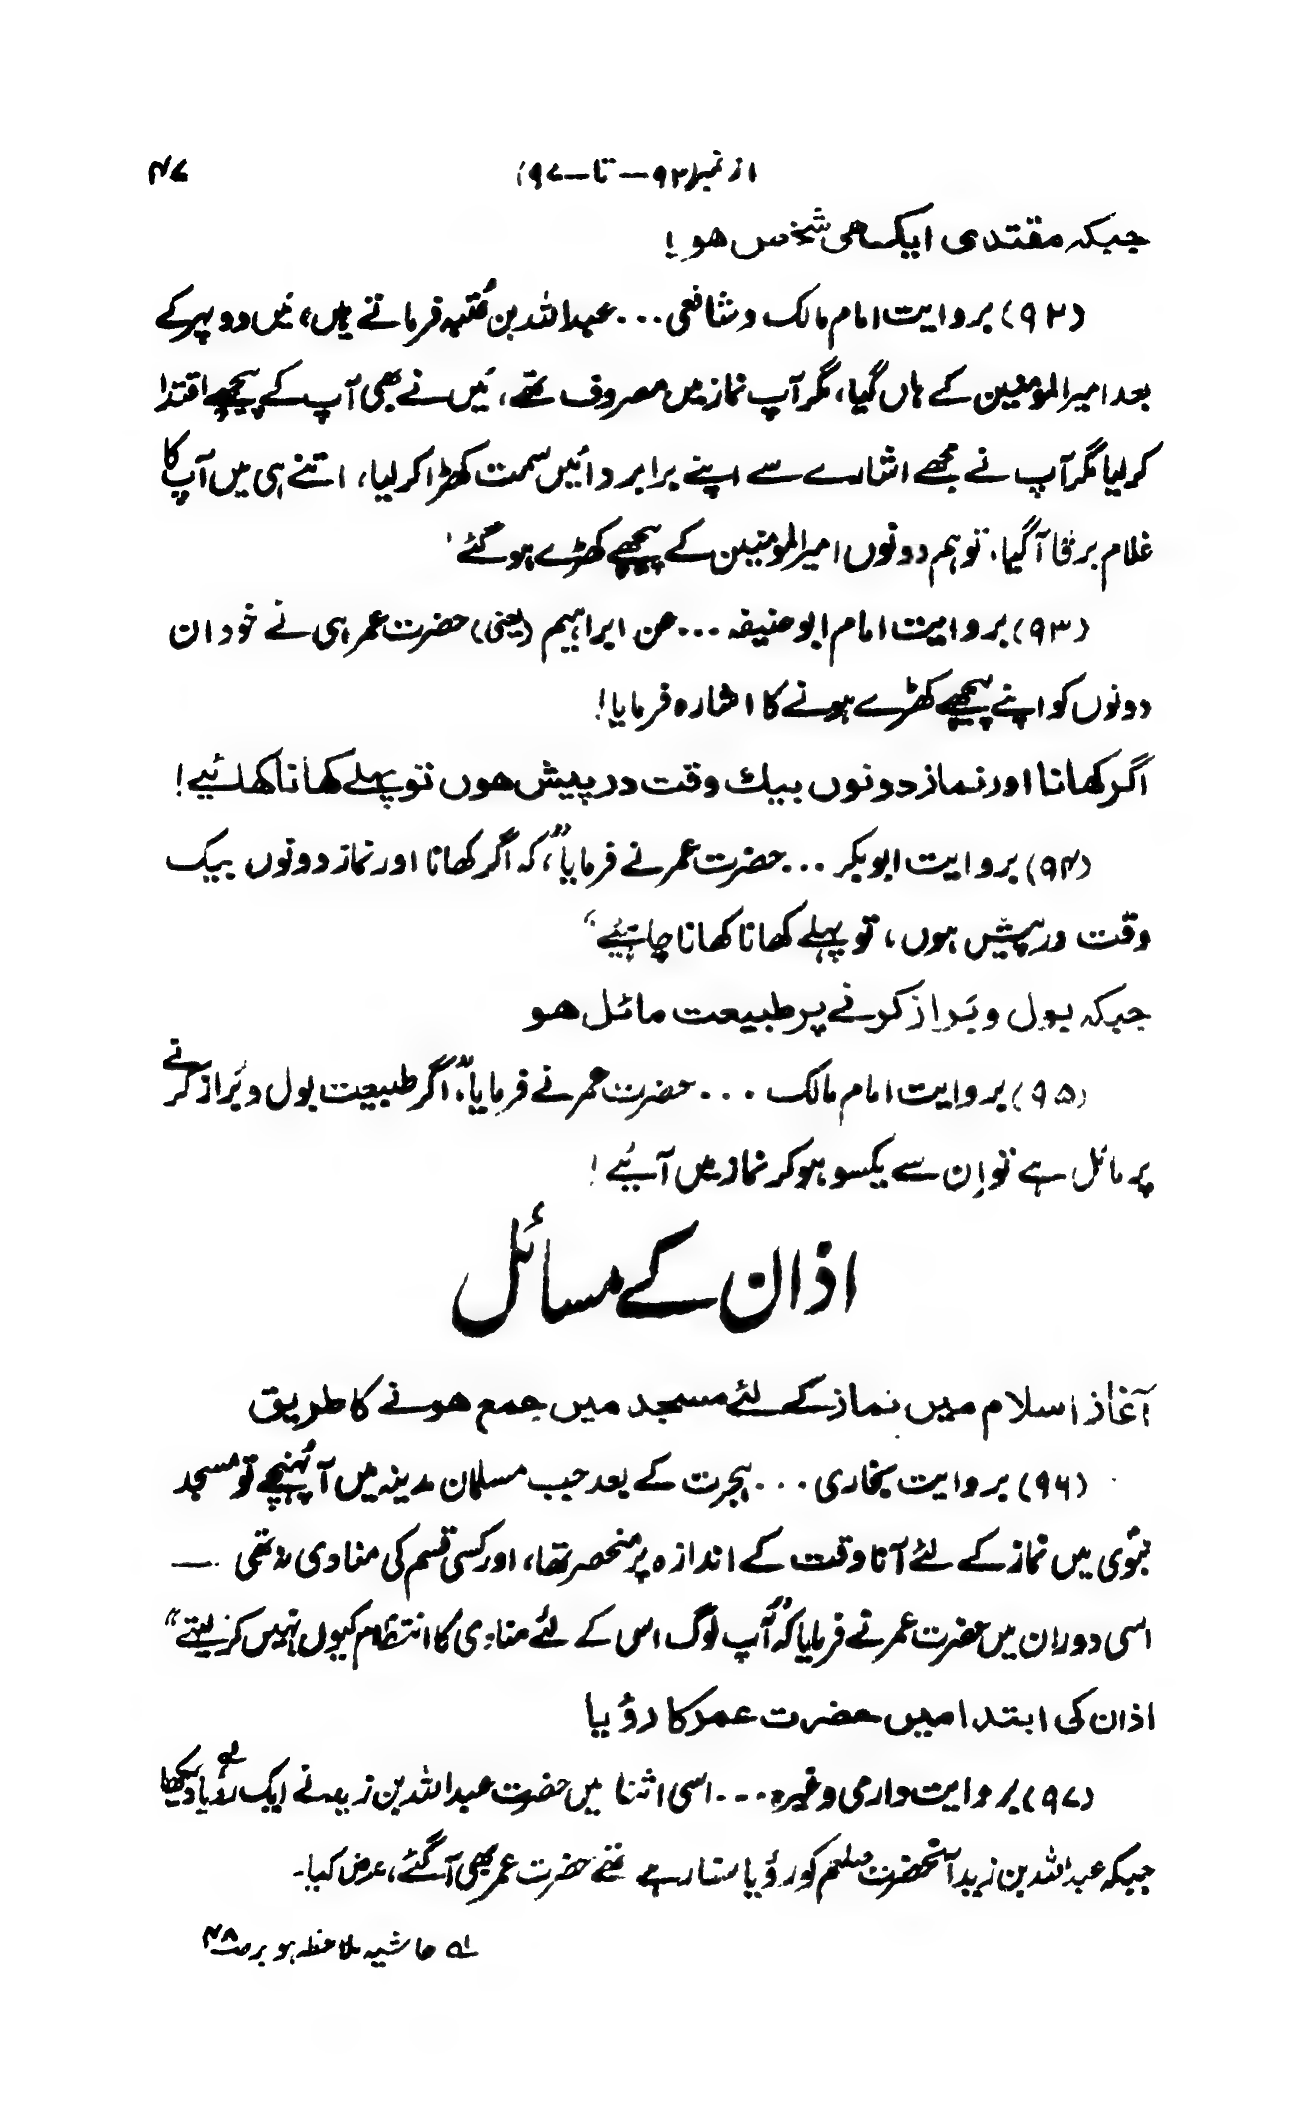 از نمبر ۹۲—تا—۹۷) ۴۷
جبکہ مقتدی ایک ھی شخص ھو!
(۹۲) بروایت امام مالک و شافعی ... عبداللہ بن عُتبہ فرماتے ہیں، مَیں دوپہر کے
بعد امیرالمومنین کے ہاں گیا، مگر آپ نماز میں مصروف تھے، مَیں نے بھی آپ کے پیچھے اقتدا
کر لیا مگر آپ نے مجھے اشارے سے اپنے برابر دائیں سمت کھڑا کر لیا، اتنے ہی میں آپ کا
غلام برقا آگیا، تو ہم دونوں امیرالمومنین کے پیچھے کھڑے ہو گئے'
(۹۳) بروایت امام ابو حنیفہ ... عن ابراہیم (یعنی) حضرت عمر ہی نے خود ان
دونوں کو اپنے پیچھے کھڑے ہونے کا اشارہ فرمایا!
اگر کھانا اور نماز دونوں بیک وقت درپیش ھوں تو پہلے کھانا کھائیے!
(۹۴) بروایت ابو بکر ... حضرت عمر نے فرمایا”، کہ اگر کھانا اور نماز دونوں بیک
وقت درپیش ہوں، تو پہلے کھانا کھانا چاہئیے“
جبکہ بول و بَراز کرنے پر طبیعت مائل ھو
(۹۵) بروایت امام مالک ... حضرت عمر نے فرمایا”، اگر طبیعت بول و بَراز کرنے
پر مائل ہے تو اِن سے یکسو ہو کر نماز میں آئیے!
اذان کے مسائل
آغاز اسلام میں نماز کے لئے مسجد میں جمع ھونے کا طریق
(۹۶) بروایت بخاری ... ہجرت کے بعد جب مسلمان مدینہ میں آ پہُنچے تو مسجد
نبوی میں نماز کے لئے آنا وقت کے اندازہ پر منحصر تھا، اور کسی قسم کی منادی نہ تھی —
اسی دوران میں حضرت عمر نے فرمایا کہ ”آپ لوگ اس کے لئے منادی کا انتظام کیوں نہیں کر لیتے“
اذان کی ابتدا میں حضرت عمر کا رؤیا
(۹۷) بروایت دارمی وغیرہ ... اسی اثنا میں حضرت عبداللہ بن زید نے ایک رؤیا لہ دیکھا
جبکہ عبداللہ بن زید آنحضرت صلعم کو رؤیا سنا رہے تھے حضرت عمر بھی آگئے، عرض کیا۔
لہ حاشیہ ملاحظہ ہو بر صـ۴۸